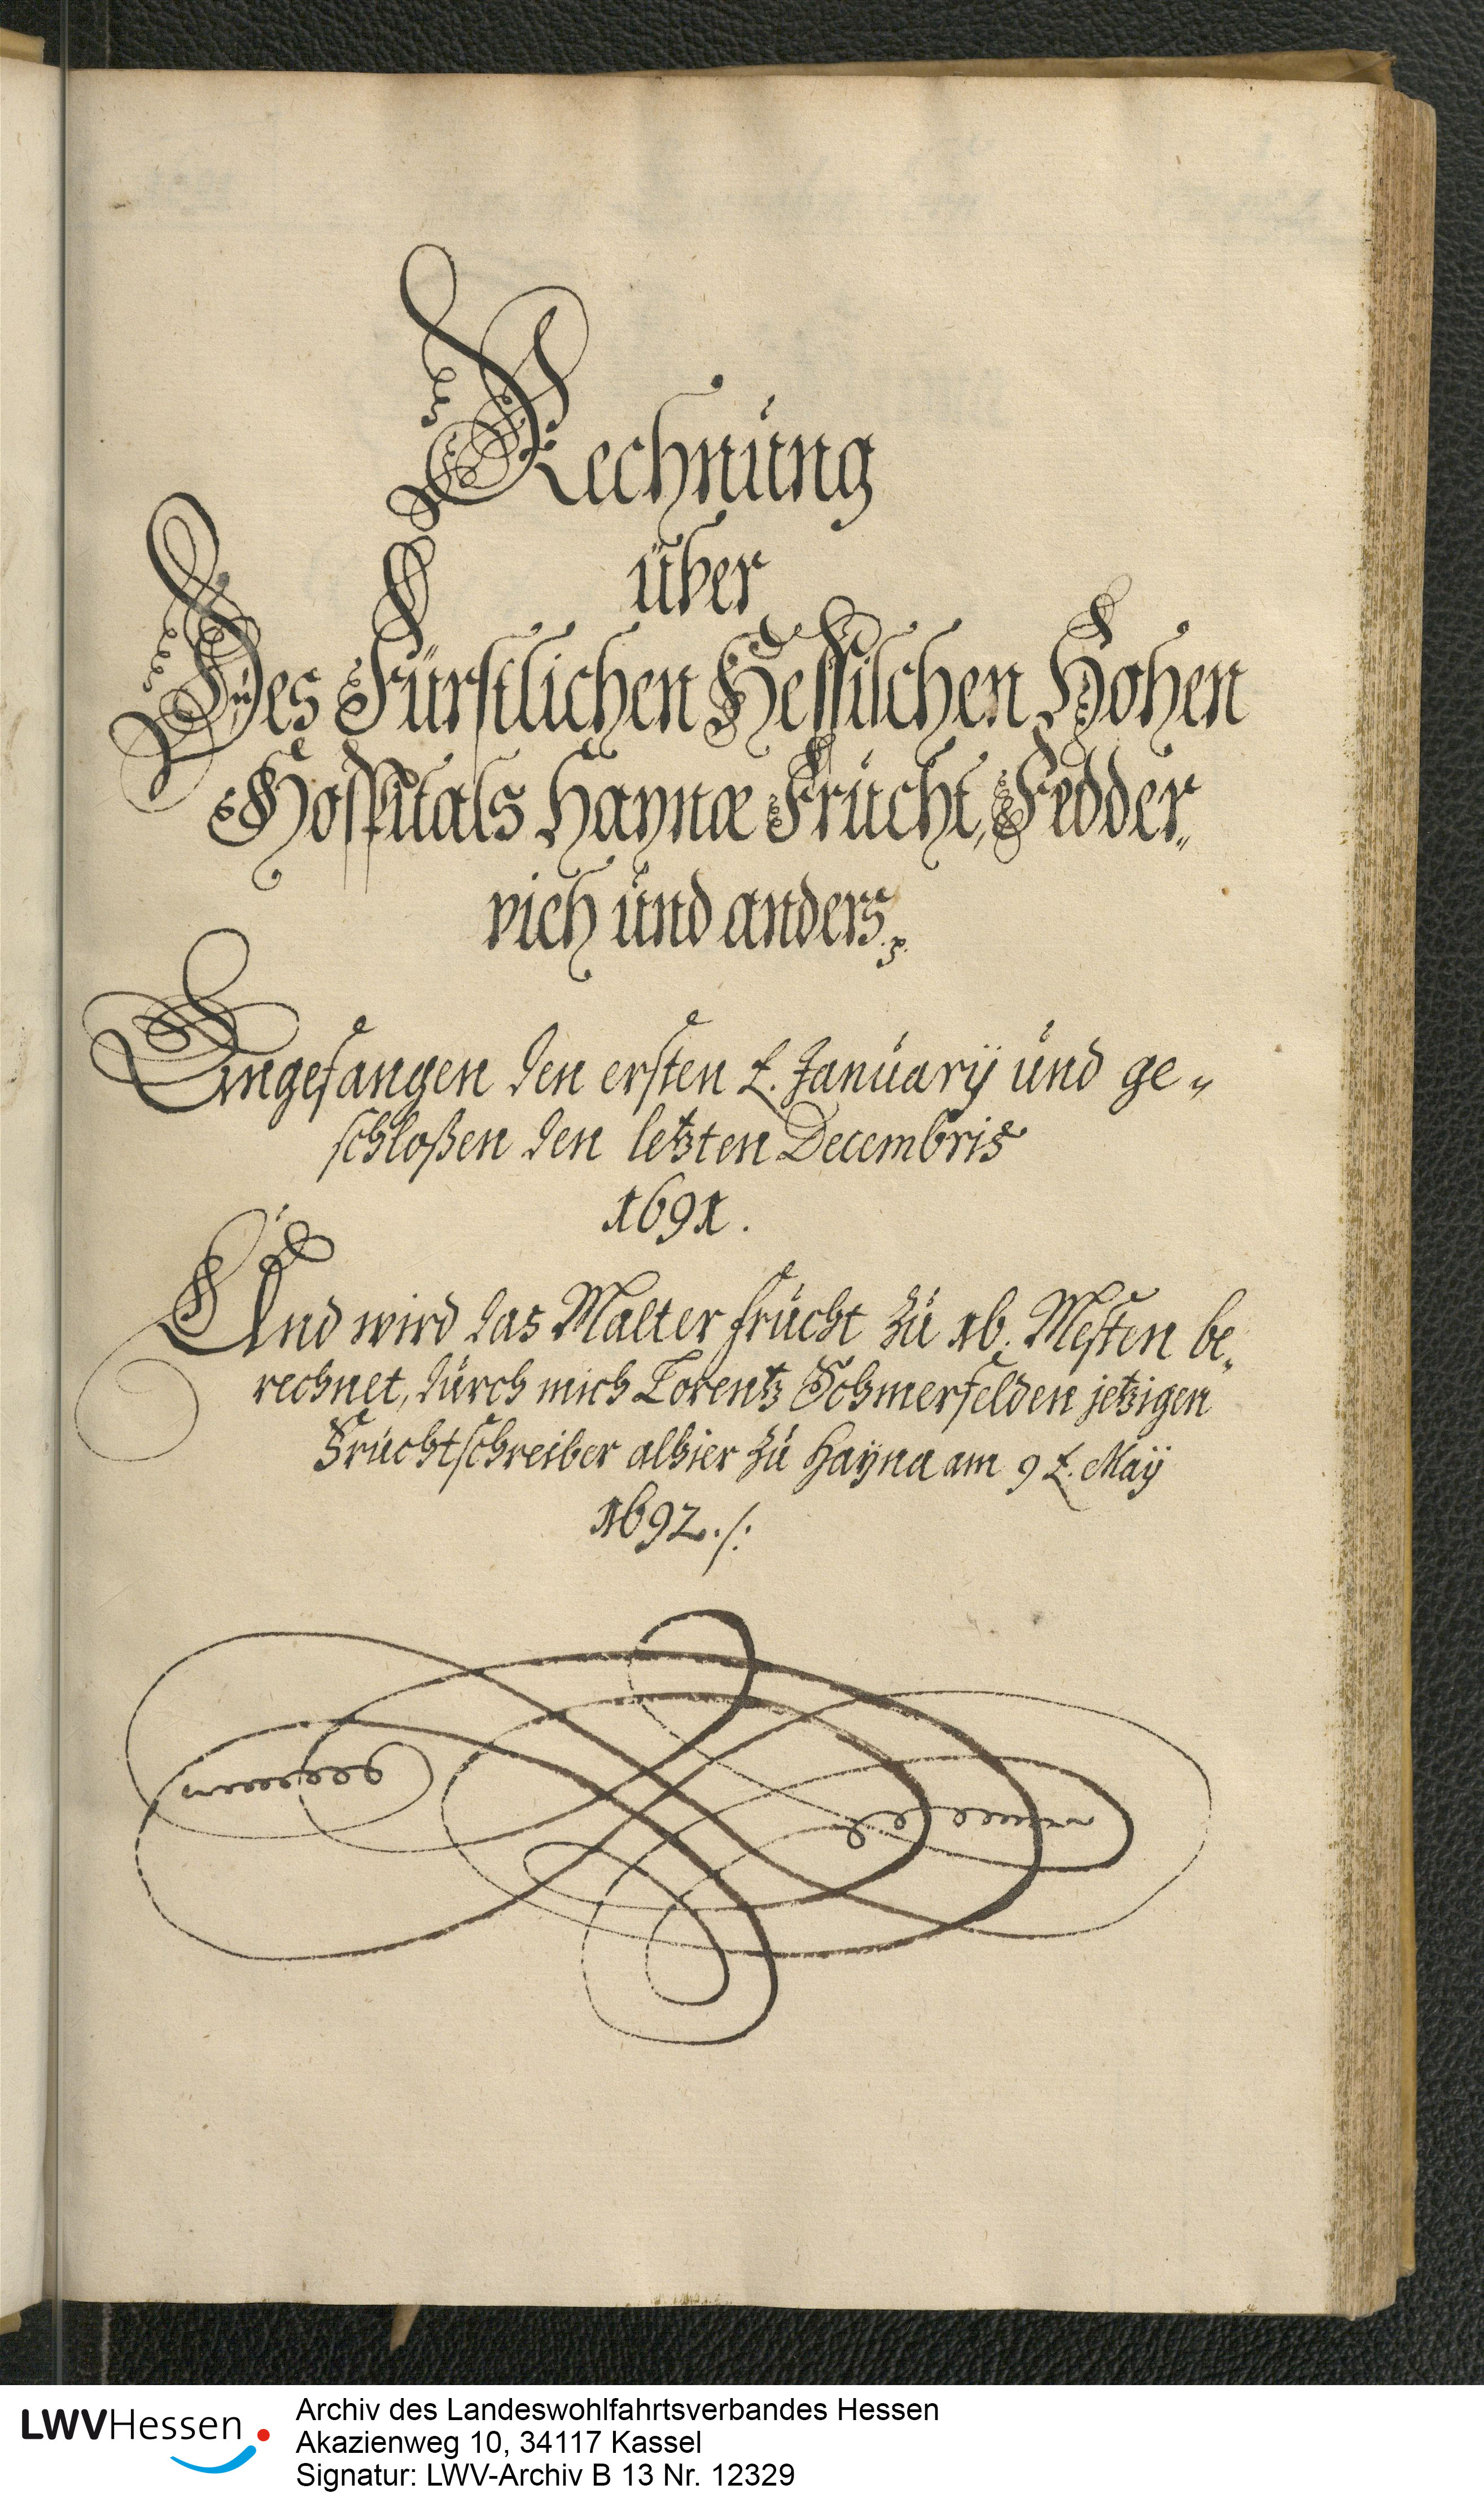 Rechnung
über
Des Fürstlichen Hessischen Hohen
Hospitals Haynæ Frucht, Fedder„
vieh und anders.
Angefangen den ersten t. January und ge„
schloßen den letzten Decembris
1691.
Und wird das Malter frucht zu 16. Mesten be„
rechnet, durch mich Lorentz Schmerfelden jetzigen
Fruchtschreiber alhier zu Hayna am 9 t. May
1692./.
LWVHessen
Archiv des Landeswohlfahrtsverbandes Hessen
Akazienweg 10, 34117 Kassel
Signatur: LWV-Archiv B 13 Nr. 12329